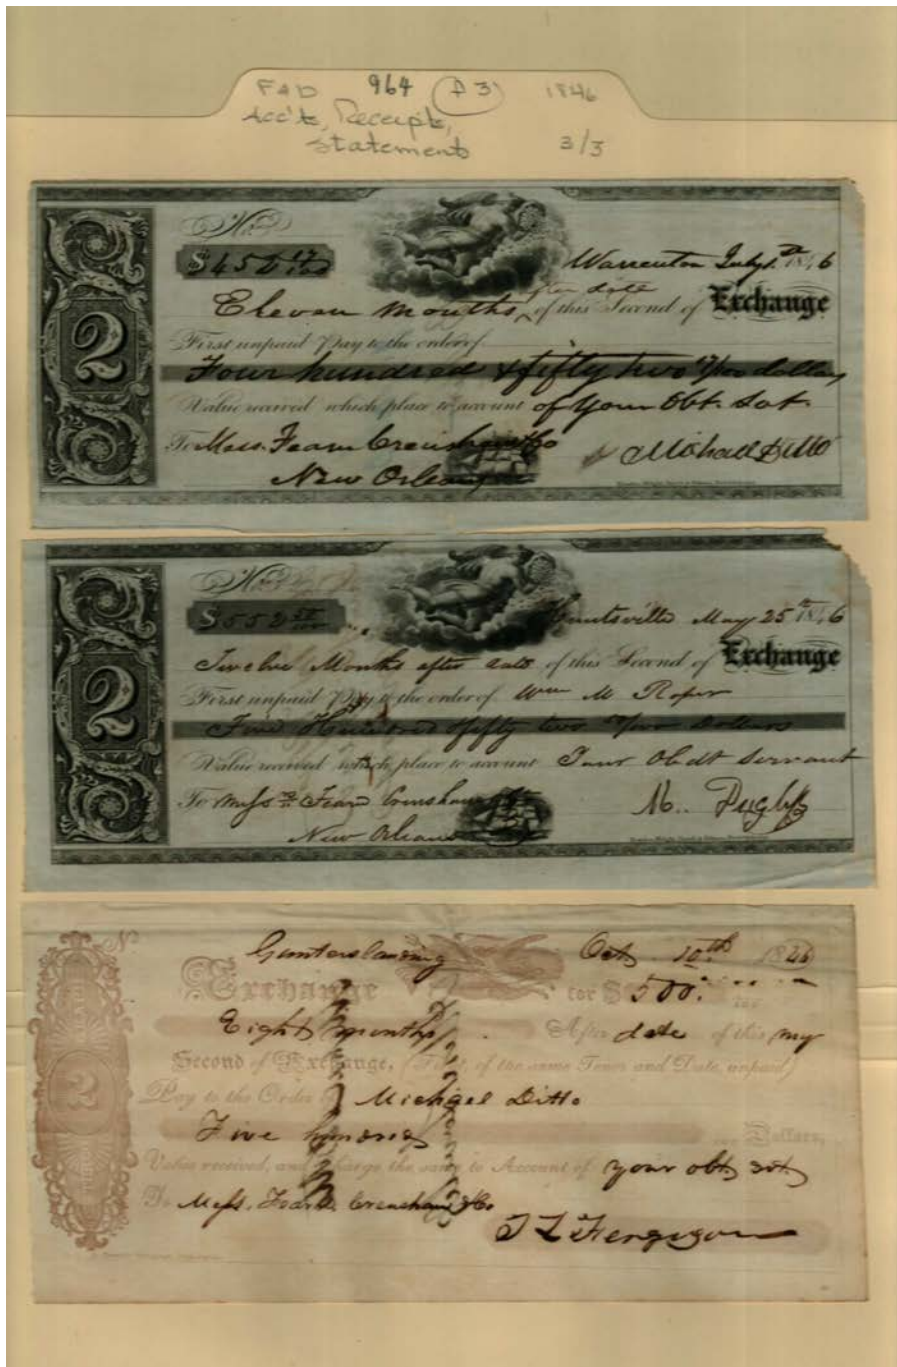 FAD 964 (D3) 1846
Acc'ts, Receipts,
Statements 3/3
No.
$452 17/100
Warrenton July 1st 1846
after date
Eleven Months of this Second of Exchange
First unpaid Pay to the order of
Four hundred & fifty two 17/100 dollars
Value received which place to account of Your Obt. Svt.
To Mess. Fearn Crenshaw & Co Michael Ditto
New Orleans
2
No.
$552
Huntsville May 25th 1846
Twelve Months after date of this Second of Exchange
First unpaid Pay to the order of Wm M Roper
Five Hundred & fifty two Dollars
Value received which place to account Your Obdt Servant
To Messrs Fearn Crenshaw & Co
New Orleans
2
No
Gunterslanding Oct 10th 1846
Exchange for $500.
Eight months After date of this my
Second of Exchange, (First, of the same Tenor and Date, unpaid)
Pay to the Order of Michael Ditto
Five hundred Dollars,
Value received, and charge the same to Account of your obt svt
To Mess. Fearn Crenshaw & Co
T L Ferguson
2